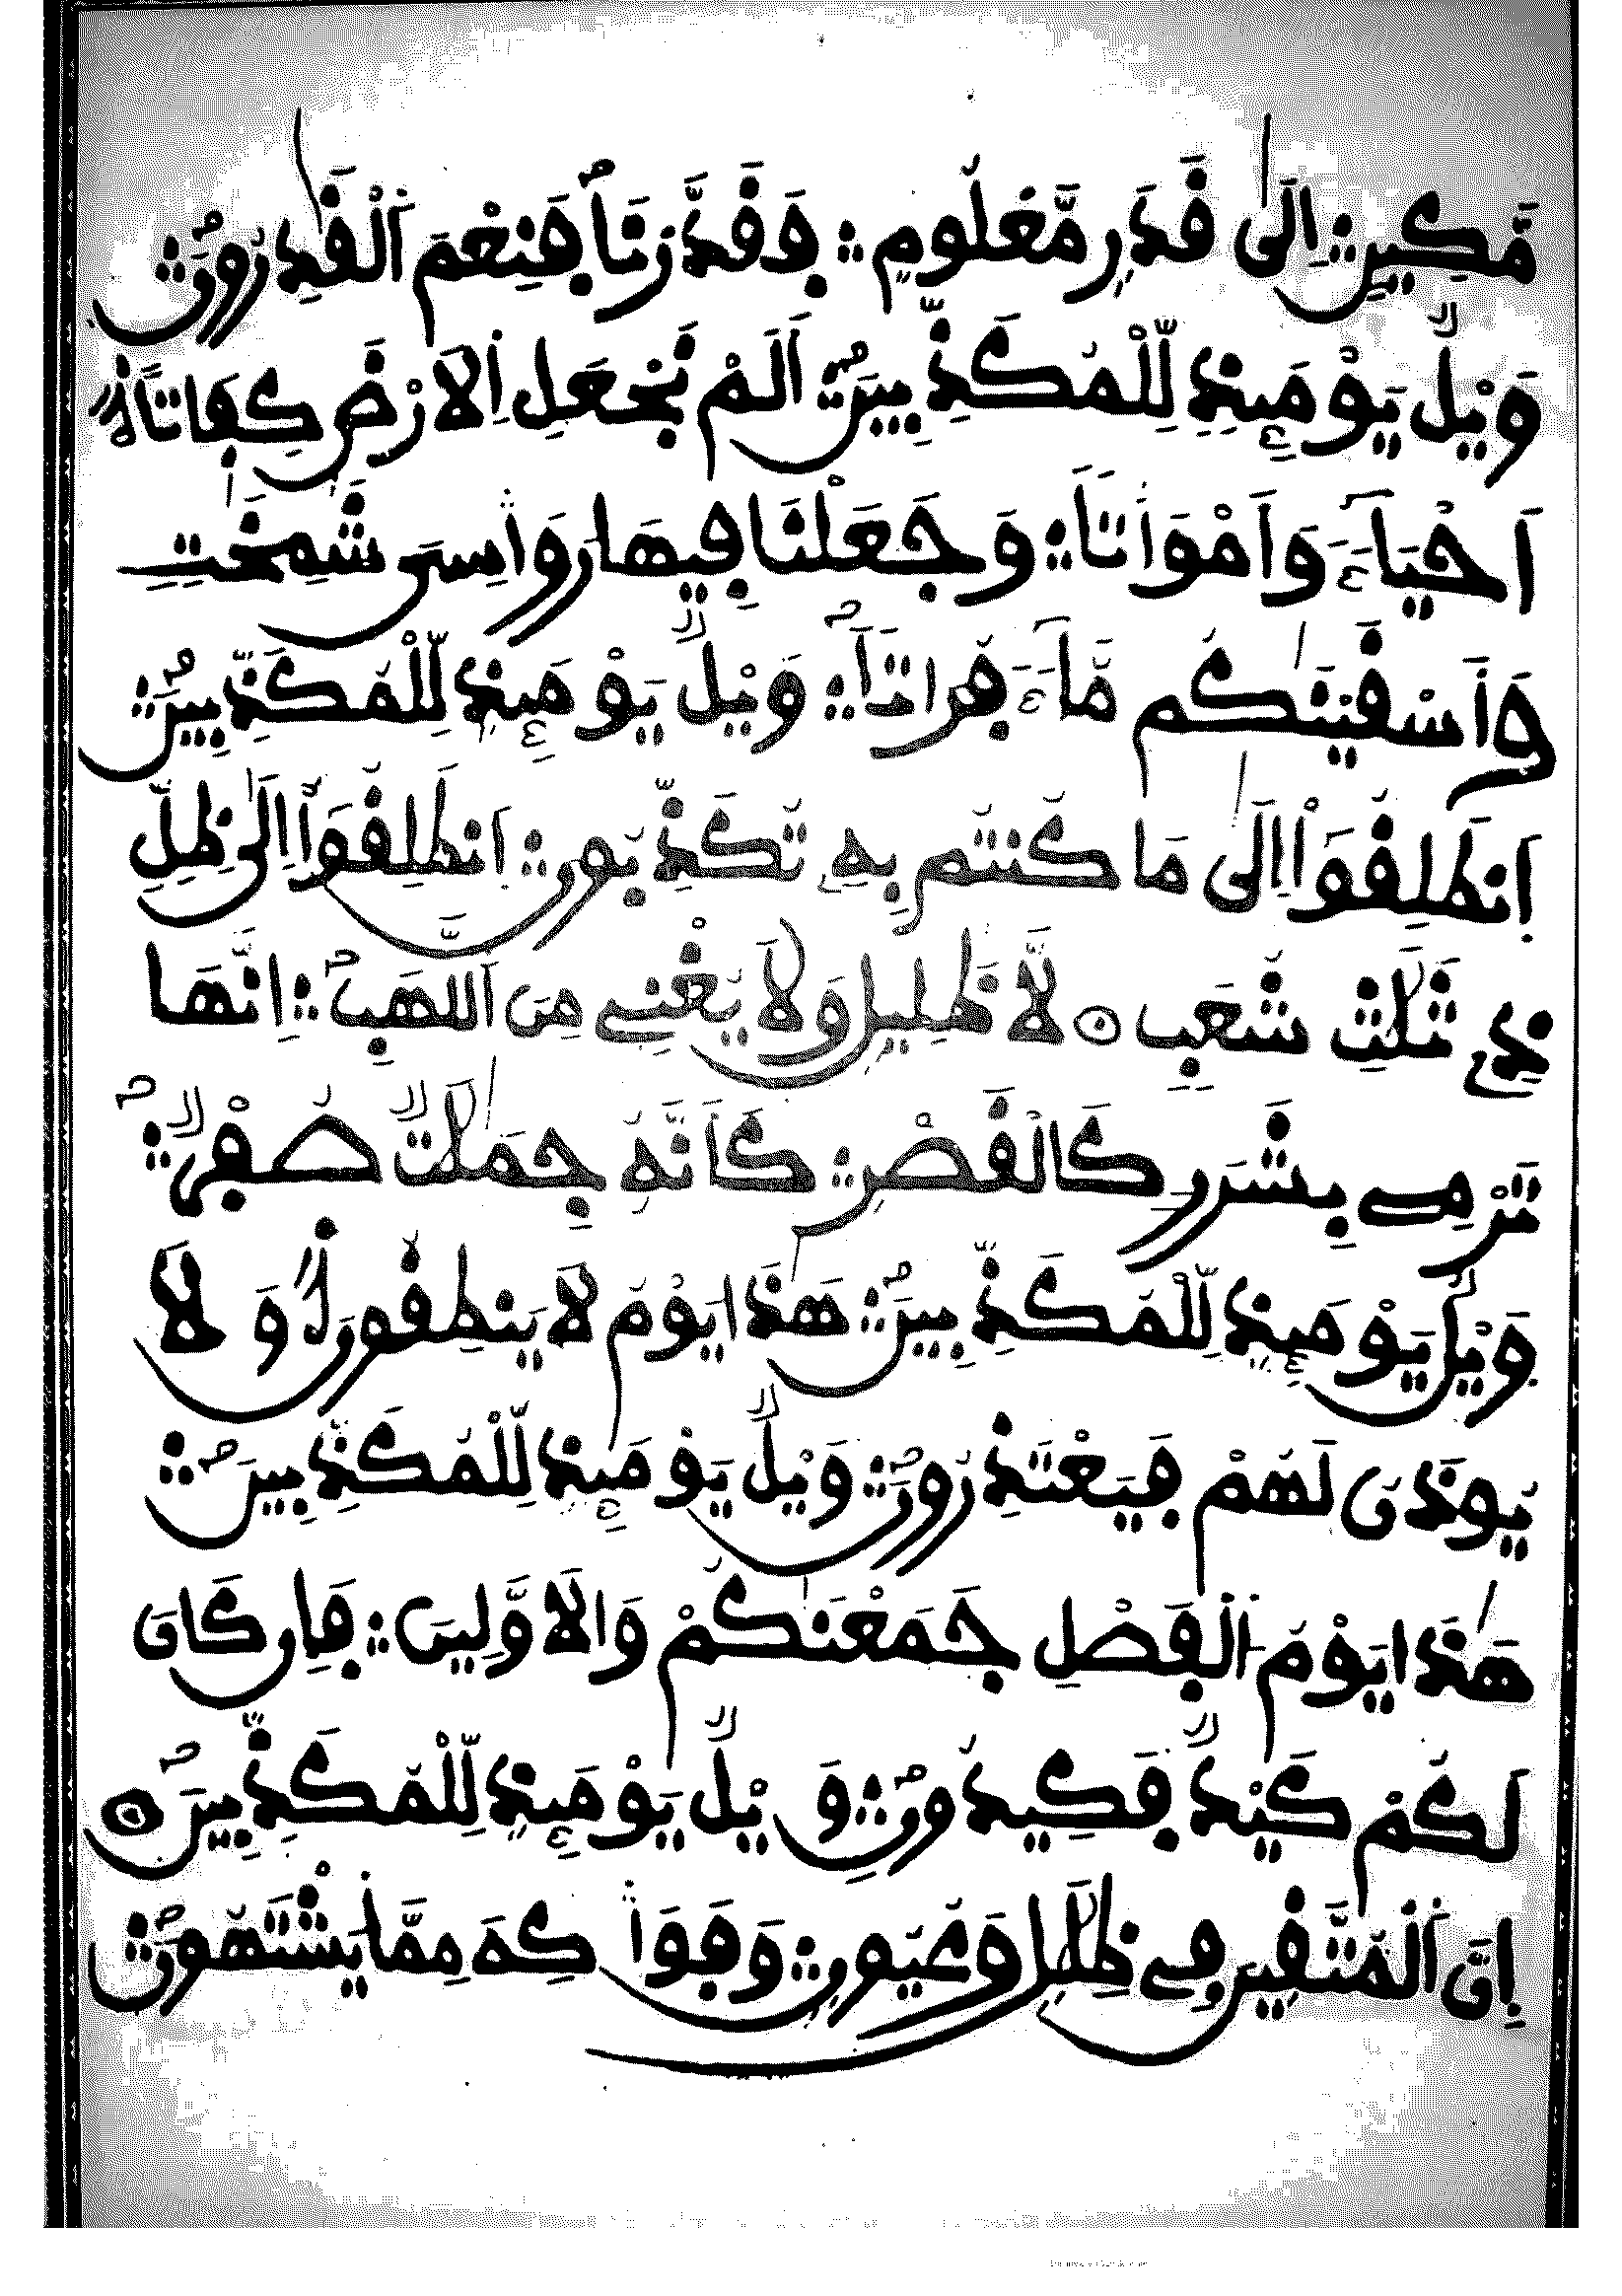 مَّكِينٍ اِلَىٰ قَدَرٍ مَّعْلُومٍ فَقَدَّرْنَا فَنِعْمَ اَ۬لْقَٰدِرُونَ
وَيْلٌ يَوْمَئِذٍ لِّلْمُكَذِّبِينَ أَلَمْ نَجْعَلِ اِ۬لَارْضَ كِفَاتاً
اَحْيَآءً وَأَمْوَاتاً وَجَعَلْنَا فِيهَا رَوَاسِىَ شَٰمِخَٰتٍ
وَأَسْقَيْنَٰكُم مَّآءً فُرَاتاً وَيْلٌ يَوْمَئِذٍ لِّلْمُكَذِّبِينَ
اَنطَلِقُوٓاْ إِلَىٰ مَا كُنتُم بِهِۦ تُكَذِّبُونَ اَنطَلِقُوٓاْ إِلَىٰ ظِلٍّ
ذِے ثَلَٰثِ شُعَبٍ لَّا ظَلِيلٍ وَلَا يُغْنِے مِنَ اَ۬للَّهَبِ إِنَّهَا
تَرْمِے بِشَرَرٍ كَالْقَصْرِ كَأَنَّهُۥ جِمَٰلَٰتٌ صُفْرٌ
وَيْلٌ يَوْمَئِذٍ لِّلْمُكَذِّبِينَ هَٰذَا يَوْمُ لَا يَنطِقُونَ وَلَا
يُوذَنُ لَهُمْ فَيَعْتَذِرُونَ وَيْلٌ يَوْمَئِذٍ لِّلْمُكَذِّبِينَ
هَٰذَا يَوْمُ اُ۬لْفَصْلِ جَمَعْنَٰكُمْ وَالَاوَّلِينَ فَإِن كَانَ
لَكُمْ كَيْدٌ فَكِيدُونِ وَيْلٌ يَوْمَئِذٍ لِّلْمُكَذِّبِينَ
إِنَّ اَ۬لْمُتَّقِينَ فِے ظِلَٰلٍ وَعُيُونٍ وَفَوَاكِهَ مِمَّا يَشْتَهُونَ